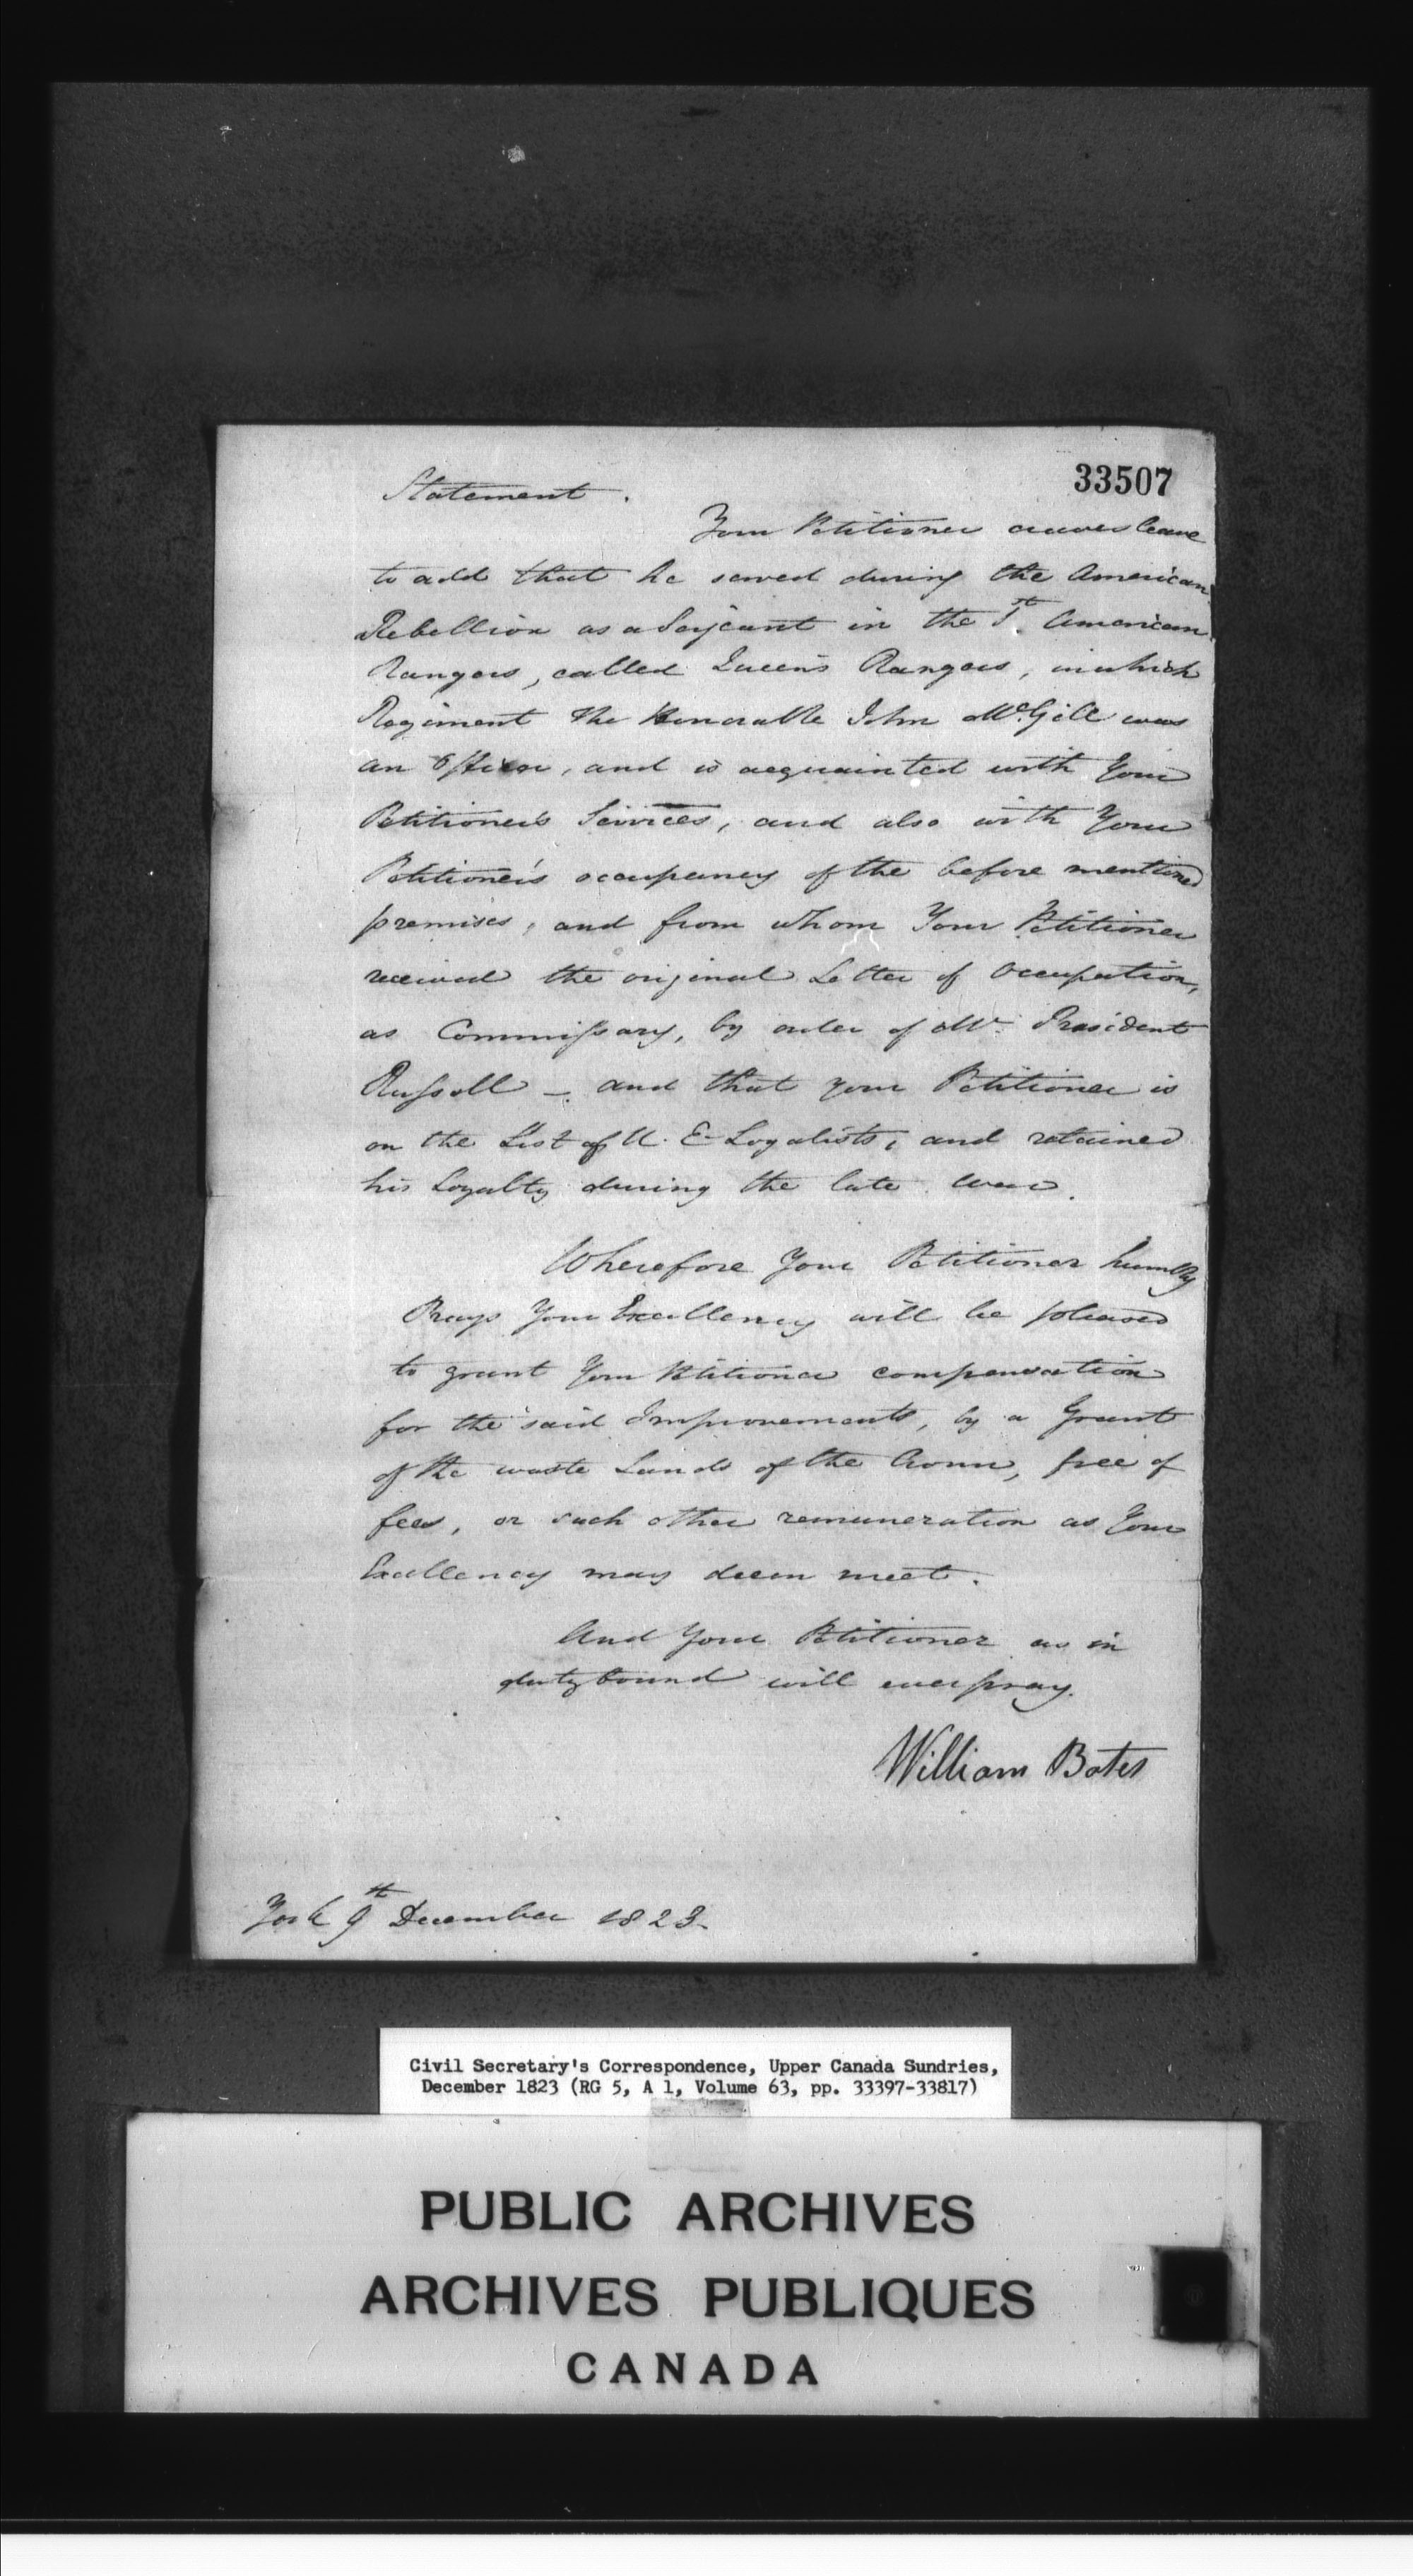 33507
Statement.
Your Petitioner craves leave
to add that he served during the American
Rebellion as a Serjeant in the 1st American
Rangers, called Queen's Rangers, in which
Regiment the Honorable John McGill was
an Officer, and is acquainted with Your
Petitioner's Services, and also with Your
Petitioner's occupancy of the before mentioned
premises, and from whom Your Petitioner
received the original Letter of Occupation,
as Commissary, by order of Mr. President
Russell —. and that your Petitioner is
on the List of U. E. Loyalists, and retained
his Loyalty during the late War.
Wherefore Your Petitioner humbly
Prays Your Excellency will be pleased
to grant Your Petitioner compensation
for the said Improvements, by a Grant
of the waste Lands of the Crown, free of
fees, or such other remuneration as Your
Excellency may deem meet.
And Your Petitioner as in
duty bound will ever pray.
William Bates
York 9th December 1823.
Civil Secretary's Correspondence, Upper Canada Sundries,
December 1823 (RG 5, A 1, Volume 63, pp. 33397-33817)
PUBLIC ARCHIVES
ARCHIVES PUBLIQUES
CANADA